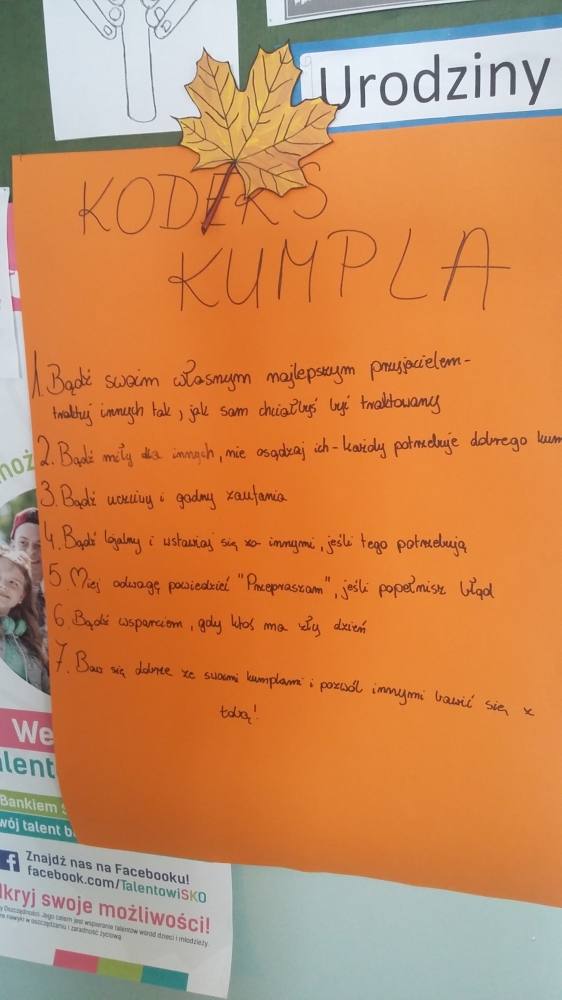 Urodziny
KODEKS
KUMPLA
1. Bądź swoim własnym najlepszym przyjacielem-
traktuj innych tak, jak sam chciałbyś być traktowany
2. Bądź miły dla innych, nie osądzaj ich - każdy potrzebuje dobrego kum
3. Bądź uczciwy i godny zaufania
4. Bądź lojalny i wstawiaj się za innymi, jeśli tego potrzebują
5. Miej odwagę powiedzieć "Przepraszam", jeśli popełnisz błąd
6. Bądź wsparciem, gdy ktoś ma zły dzień
7. Baw się dobrze ze swoimi kumplami i pozwól innymi bawić się z
tobą!
moż
We
alent
Bankiem S
wój talent b
Znajdź nas na Facebooku!
facebook.com/TalentowiSKO
dkryj swoje możliwości!
y Oszczędności. Jego celem jest wspieranie talentów wśród dzieci i młodzieży,
re nawyki w oszczędzaniu i zaradność życiową.